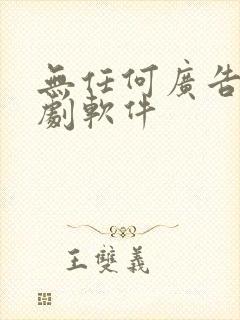 無任何廣告
劇軟件
王雙義